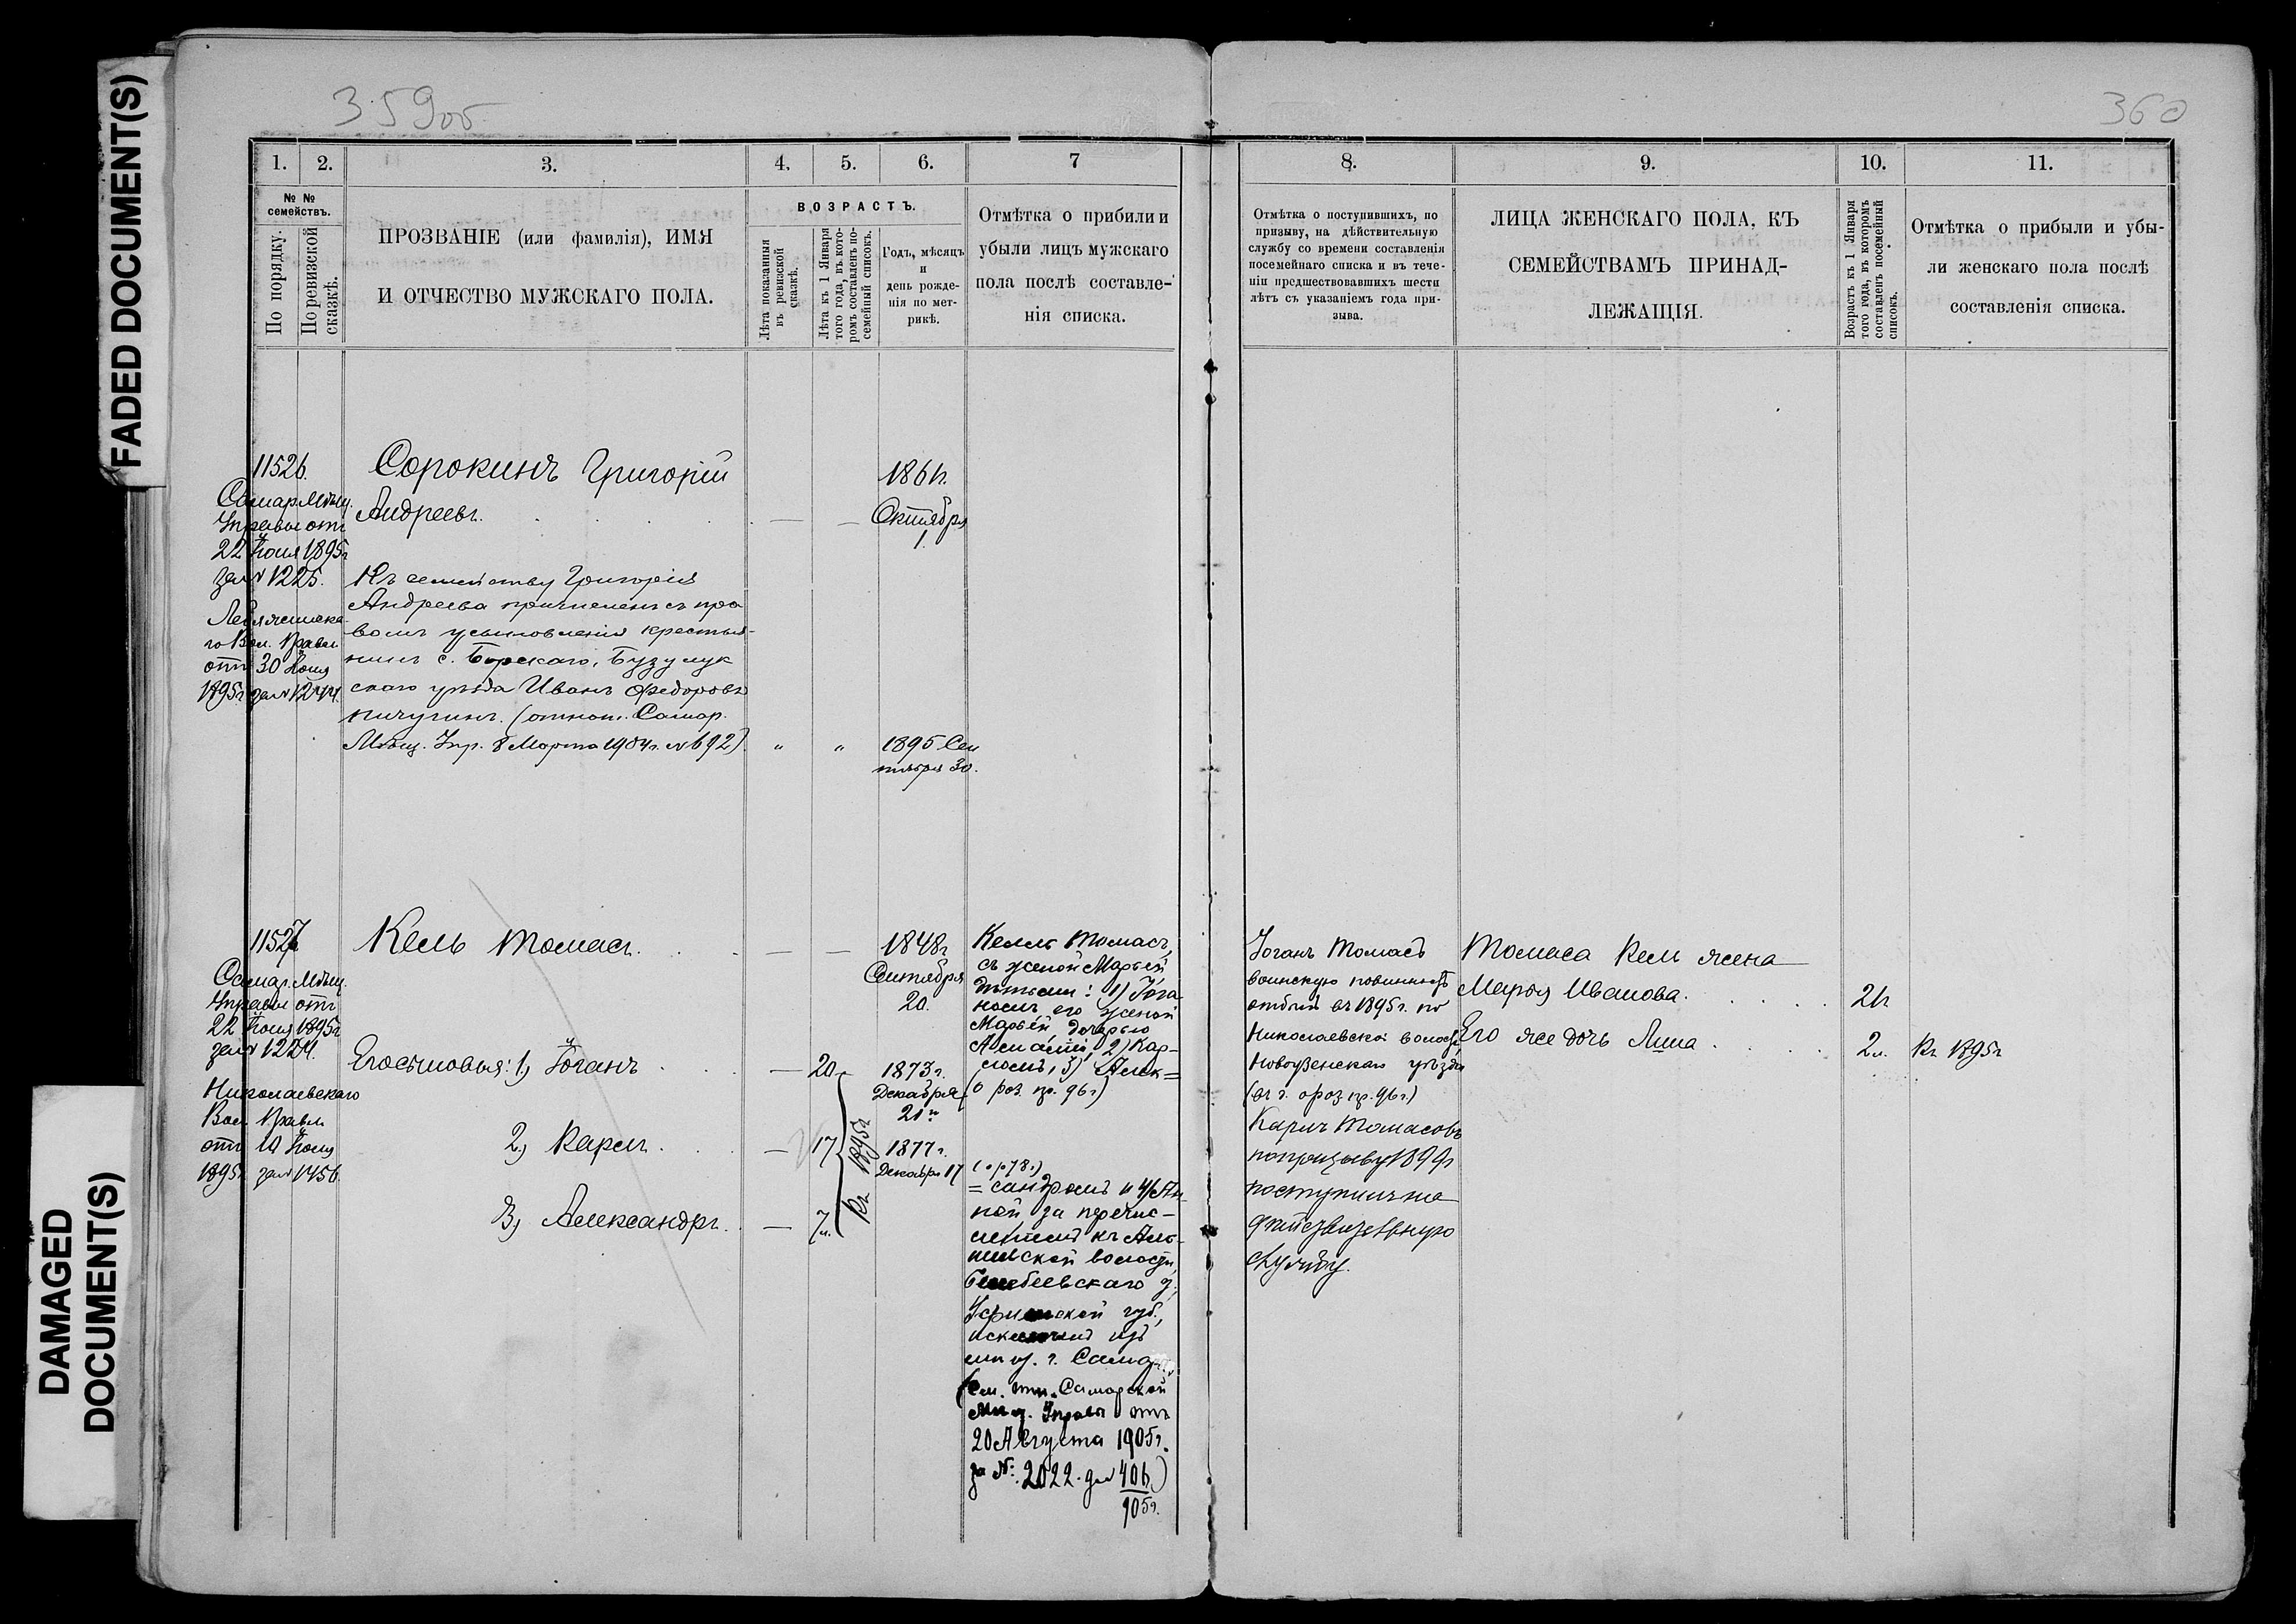 FADED DOCUMENT(S)
DAMAGED
DOCUMENT(S)
359об
1. 2. 3. 4. 5. 6. 7
№ №
семействъ.
По порядку.
По ревизской
сказкѣ.
ПРОЗВАНІЕ (или фамилія), ИМЯ
И ОТЧЕСТВО МУЖСКАГО ПОЛА.
ВОЗРАСТЪ.
Лѣта показанныя
въ ревизской
сказкѣ.
Лѣта къ 1 Января
того года, въ кото-
ромъ составленъ по-
семейный списокъ.
Годъ, мѣсяцъ
и
день рожде-
нія по мет-
рикѣ.
Отмѣтка о прибыли и
убыли лицъ мужскаго
пола послѣ составле-
нія списка.
11526.
Самар. Мѣщ.
Управы отъ
22 Іюня 1895г
за № 1225.
го Вол. Правл
отъ 30 Іюня
1895г за № 1244.
Сорокинъ Григорій
Андреевъ.
— —
1861г.
Октября
1.
Къ семейству Григорія
Андреева причисленъ съ пра
вомъ усыновленія крестья-
нинъ с. Борскаго, Бузулук
скаго уѣзда Иванъ Федоровъ
Пичугинъ. (отнош. Самар.
Мѣщ. Упр. 8 Марта 1904г. № 692).
" "
1895 Сен
тября 30.
11527
Самар. Мѣщ.
Управы отъ
22 Іюня 1895г
за № 1224.
Николаевскаго
Вол. Правл
отъ 19 Іюня
1895г за № 1456.
Кель Томасъ.
— —
1848г
Сентября
20.
Его сыновья: 1, Іоганъ
— 20
1873г.
Декабря
21го
2, Карлъ
— 17
1877г.
Декабря 17
3, Александръ.
— 7л.
Къ 1895г
Келль Томасъ,
съ женой Марьей,
дѣтьми: 1) Іога
номъ, его женой
Марьей, дочерью
2) Кар-
ломъ, 3) Алек=
(о роз. пр. 96г)
=сандромъ и 4) Ан-
ной за перечис-
леніемъ къ
волости,
Белебеевскаго у.
Уфимской губ.,
исключены изъ
мѣщ. г. Самары
Самарской
Мѣщ. Управы отъ
20 Августа 1905г.
за №: 2022. дѣл 406)
905г.
360
8. 9. 10. 11.
Отмѣтка о поступившихъ, по
призыву, на дѣйствительную
службу со времени составленія
посемейнаго списка и въ тече-
ніи предшествовавшихъ шести
лѣтъ съ указаніемъ года при-
зыва.
ЛИЦА ЖЕНСКАГО ПОЛА, КЪ
СЕМЕЙСТВАМЪ ПРИНАД-
ЛЕЖАЩІЯ.
Возрастъ къ 1 Января
того года, въ которомъ
составленъ посемейный
списокъ.
Отмѣтка о прибыли и убы-
ли женскаго пола послѣ
составленія списка.
Іоганъ Томасъ
воинскую повинность
отбылъ въ 1895г. по
Николаевской волости,
Новоузенскаго уѣзда
Карлъ Томасовъ
по призыву 1899г
поступилъ на
дѣйствительную
службу.
Томаса Кель жена
Марья Иванова.
Его же дочь Анна
2л.
Къ 1895г